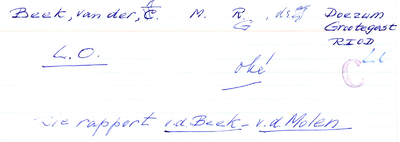 Beek, van der, C. M. R. Doezum
G Grootegast
RIOD
L.O. oké C LC
zie rapport v.d. Beek - v.d. Molen